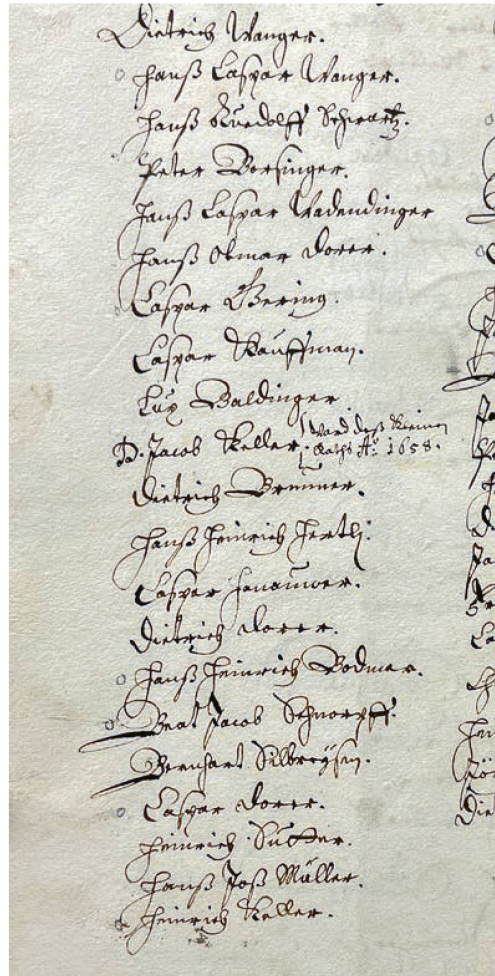 Dietrich Wanger.
Hanß Caspar Wanger.
Hanß Ruedolff Schwartz.
Peter Borsinger.
Hanß Caspar Wadendinger
Hanß Otmar Dorer.
Caspar Gering.
Caspar Kauffman.
Lux Baldinger
D. Jacob Keller. ward deß Kleinen
Raths Aº. 1658.
Dietrich Brunner.
Hanß Heinrich Hertli.
Caspar
Dietrich Dorer.
Hanß Heinrich Bodmer.
Beat Jacob Schnorpff.
Bernhart Silbereysen.
Caspar Dorer.
Heinrich Sutter.
Hanß Joß Müller.
Heinrich Keller.